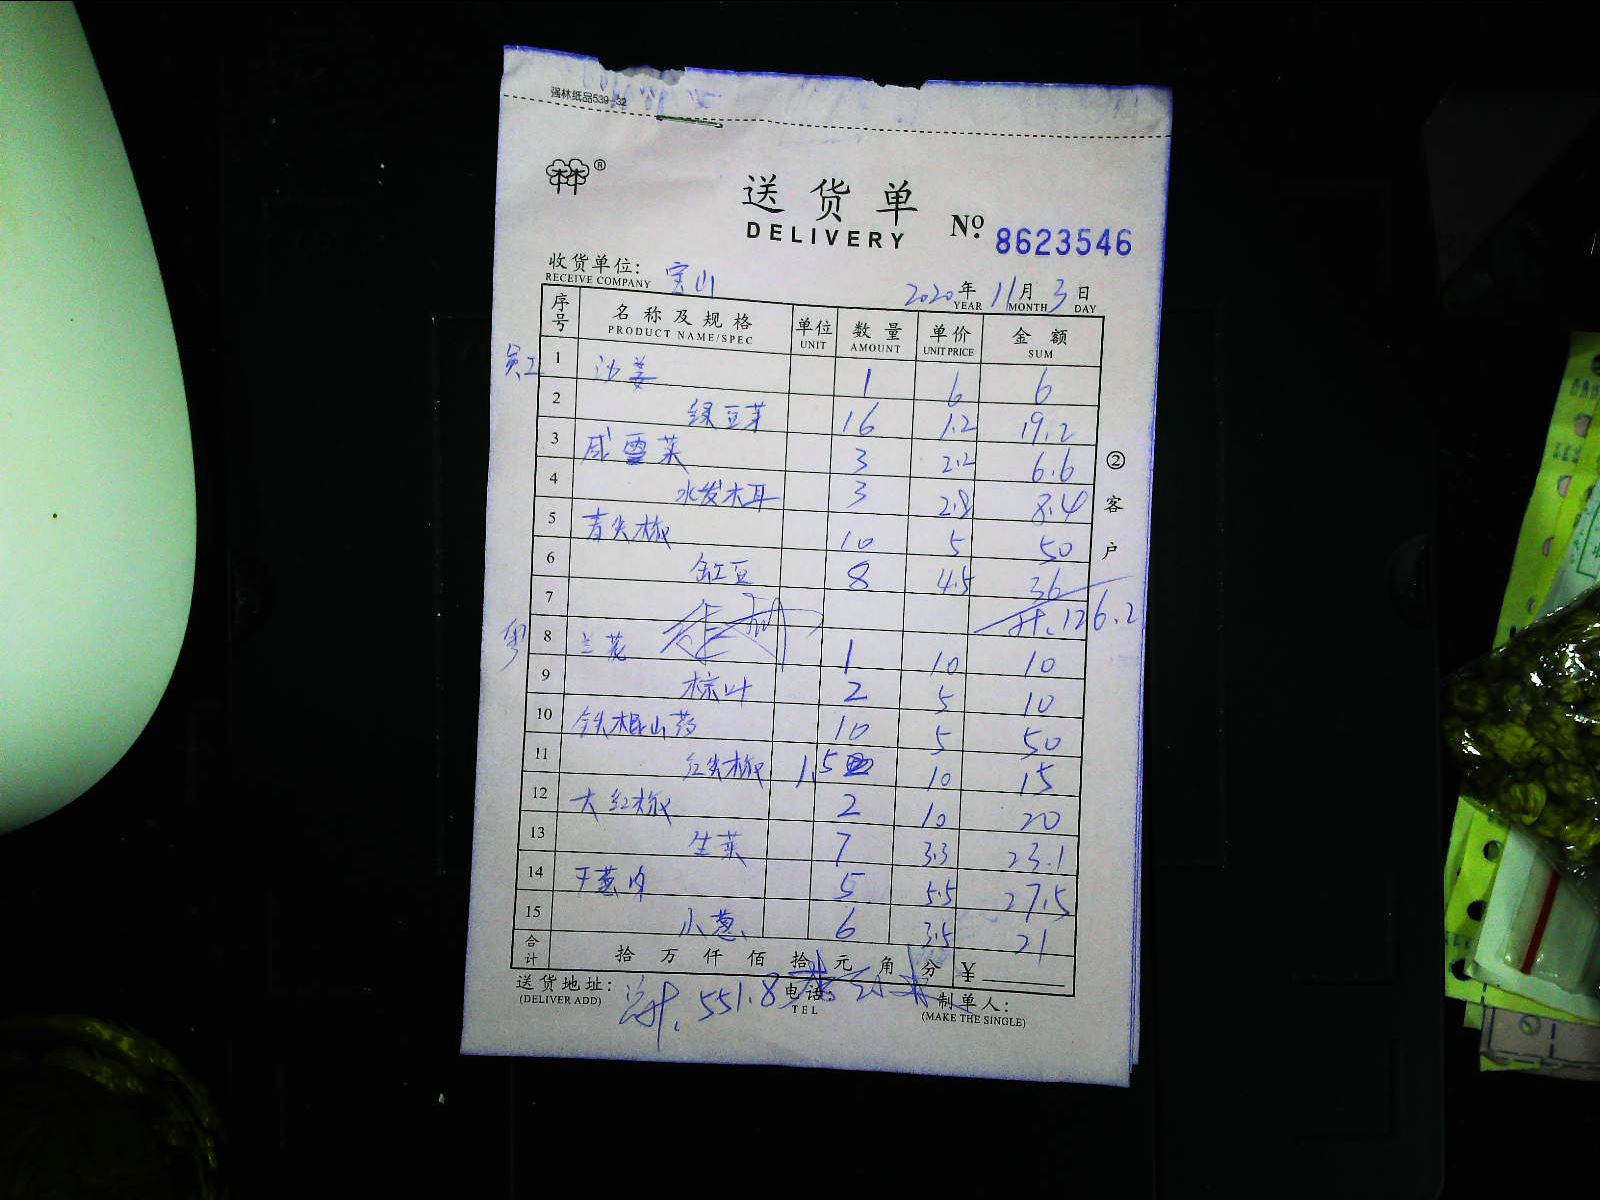 强林纸品539-32
林林®
送货单
DELIVERY
No. 8623546
收货单位: 宝山
RECEIVE COMPANY
2020年11月3日
YEAR MONTH DAY
序号 名称及规格 单位 数量 单价 金额
PRODUCT NAME/SPEC UNIT AMOUNT UNIT PRICE SUM
员工 1 沙姜 1 6 6
2 绿豆芽 16 1.2 19.2
3 咸雪菜 3 2.2 6.6
4 水发木耳 3 2.8 8.4
5 青尖椒 10 5 50
6 缸豆 8 4.5 36
7 计.126.2
粤 8 兰花 1 10 10
9 棕叶 2 5 10
10 铁棍山药 10 5 50
11 红尖椒 1.5 10 15
12 大红椒 2 10 20
13 生菜 7 3.3 23.1
14 干葱肉 5 5.5 27.5
15 小葱 6 3.5 21
合计 拾 万 仟 佰 拾 元 角 分 ¥
送货地址: 总计.551.8 电话: 制单人:
(DELIVER ADD) TEL (MAKE THE SINGLE)
②客户